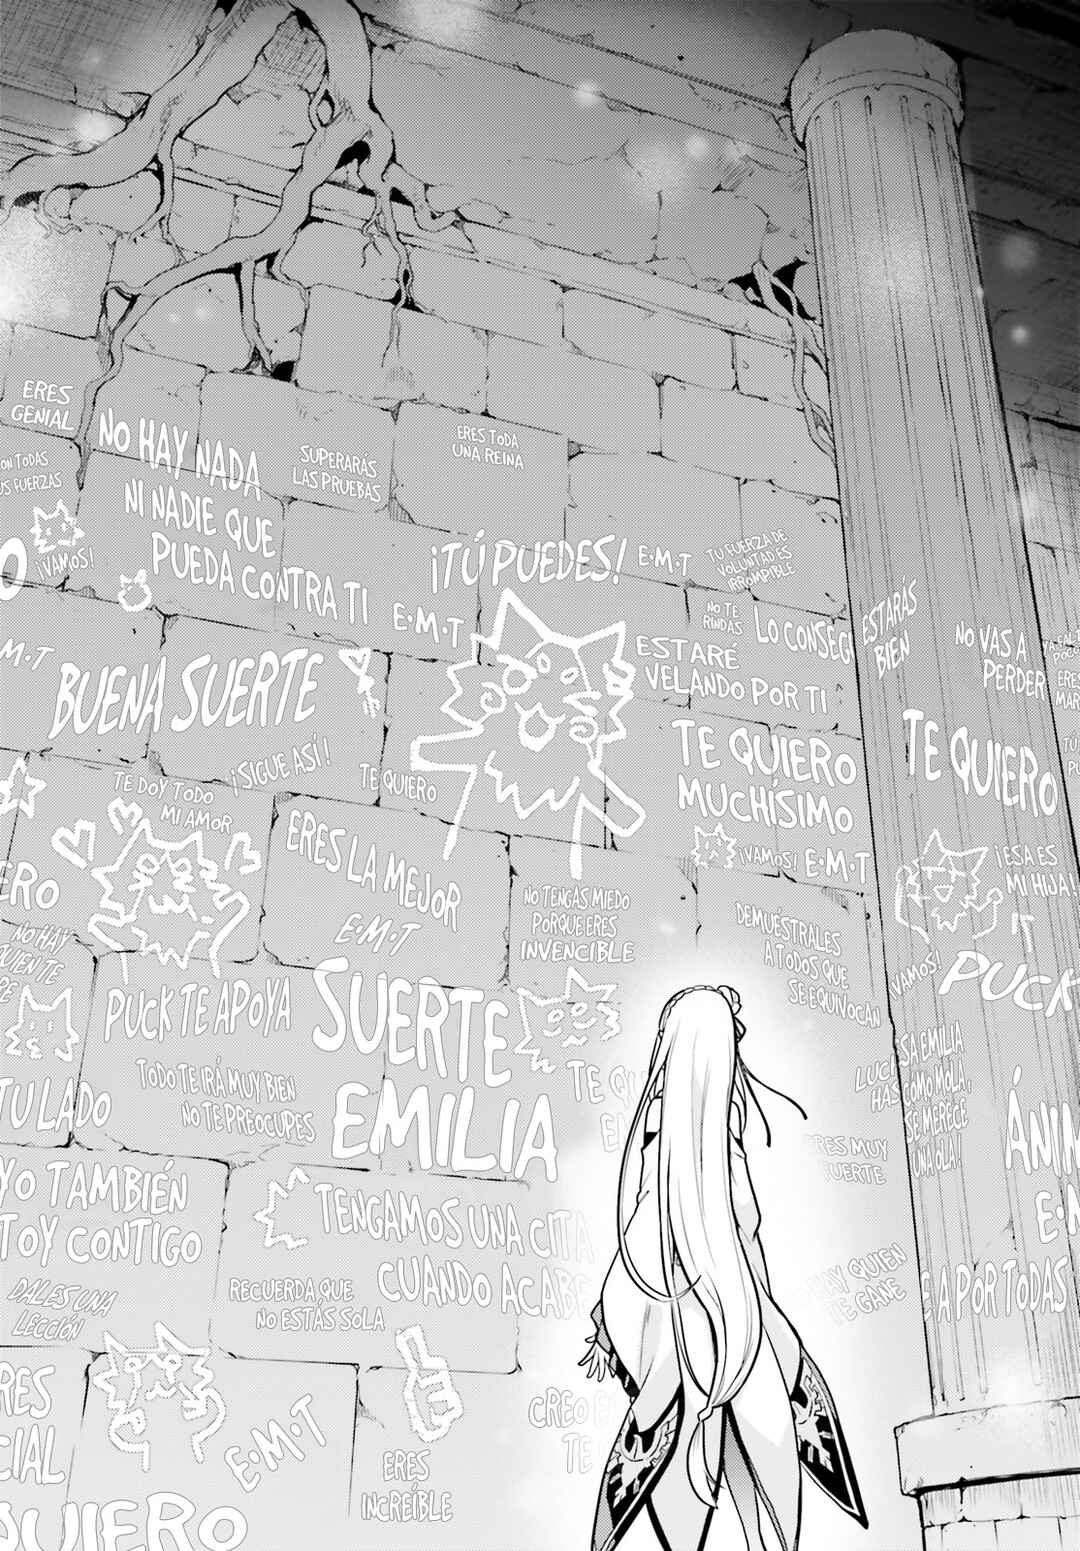 ERES
GENIAL
NO HAY NADA
NI NADIE QUE
PUEDA CONTRA TI
SUPERARÁS
LAS PRUEBAS
ERES TODA
UNA REINA
CON TODAS
US FUERZAS
¡VAMOS!
O
¡TÚ PUEDES!
E·M·T
TU FUERZA DE
VOLUNTAD ES
IRROMPIBLE
E·M·T
NO TE
RINDAS
LO CONSEGU
ESTARÁS
BIEN
NO VAS A
PERDER
ERES
MAR
M·T
BUENA SUERTE
ESTARÉ
VELANDO POR TI
¡SIGUE ASÍ!
TE QUIERO
TE QUIERO
MUCHÍSIMO
TE QUIERO
TÚ
PU
TE DOY TODO
MI AMOR
ERES LA MEJOR
E·M·T
¡VAMOS! E·M·T
¡ESA ES
MI HIJA!
ERO
NO HAY
QUIEN TE
NO TENGAS MIEDO
PORQUE ERES
INVENCIBLE
DEMUÉSTRALES
A TODOS QUE
SE EQUIVOCAN
¡VAMOS!
PUCK
PUCK TE APOYA
SUERTE
EMILIA
TODO TE IRÁ MUY BIEN
NO TE PREOCUPES
TE QU
TU LADO
LUCH
HAS
ESA EMILIA
COMO MOLA,
SE MERECE
UNA OLA!
ÁNIM
E·M
ERES MUY
FUERTE
YO TAMBIÉN
TOY CONTIGO
TENGAMOS UNA CITA
CUANDO ACABE
DALES UNA
LECCIÓN
RECUERDA QUE
NO ESTÁS SOLA
HAY QUIEN
TE GANE
E A POR TODAS
RES
CIAL
E·M·T
ERES
INCREÍBLE
CREO E
TE
QUIERO